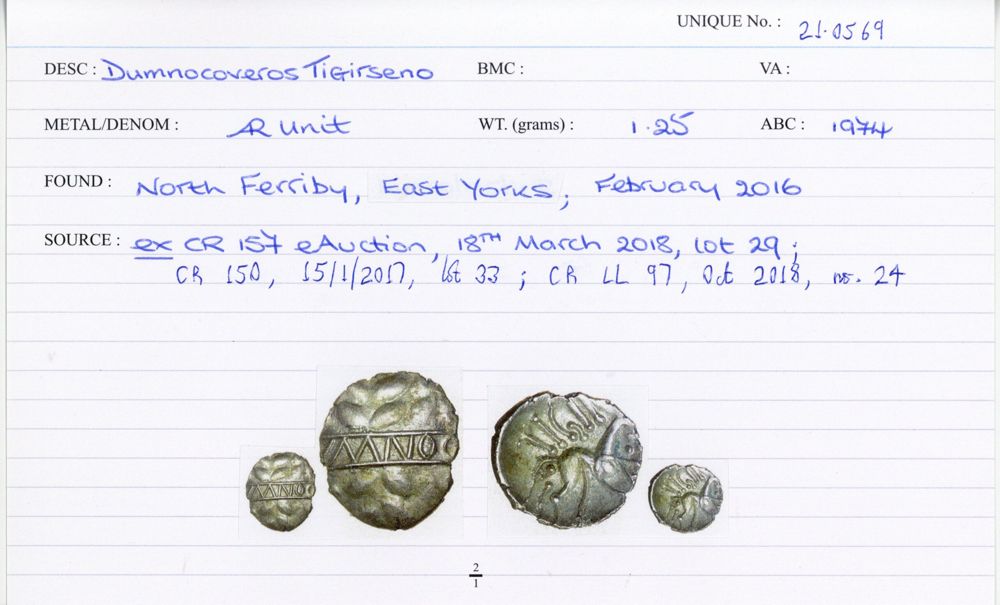 UNIQUE No. : 21.0569
DESC : Dumnocoveros Tigirseno BMC : VA :
METAL/DENOM : AR Unit WT. (grams) : 1.25 ABC : 1974
FOUND : North Ferriby, East Yorks; February 2016
SOURCE : ex CR 157 eAuction, 18TH March 2018, lot 29;
CR 150, 15/1/2017, lot 33; CR LL 97, Oct 2018, no. 24
2
1